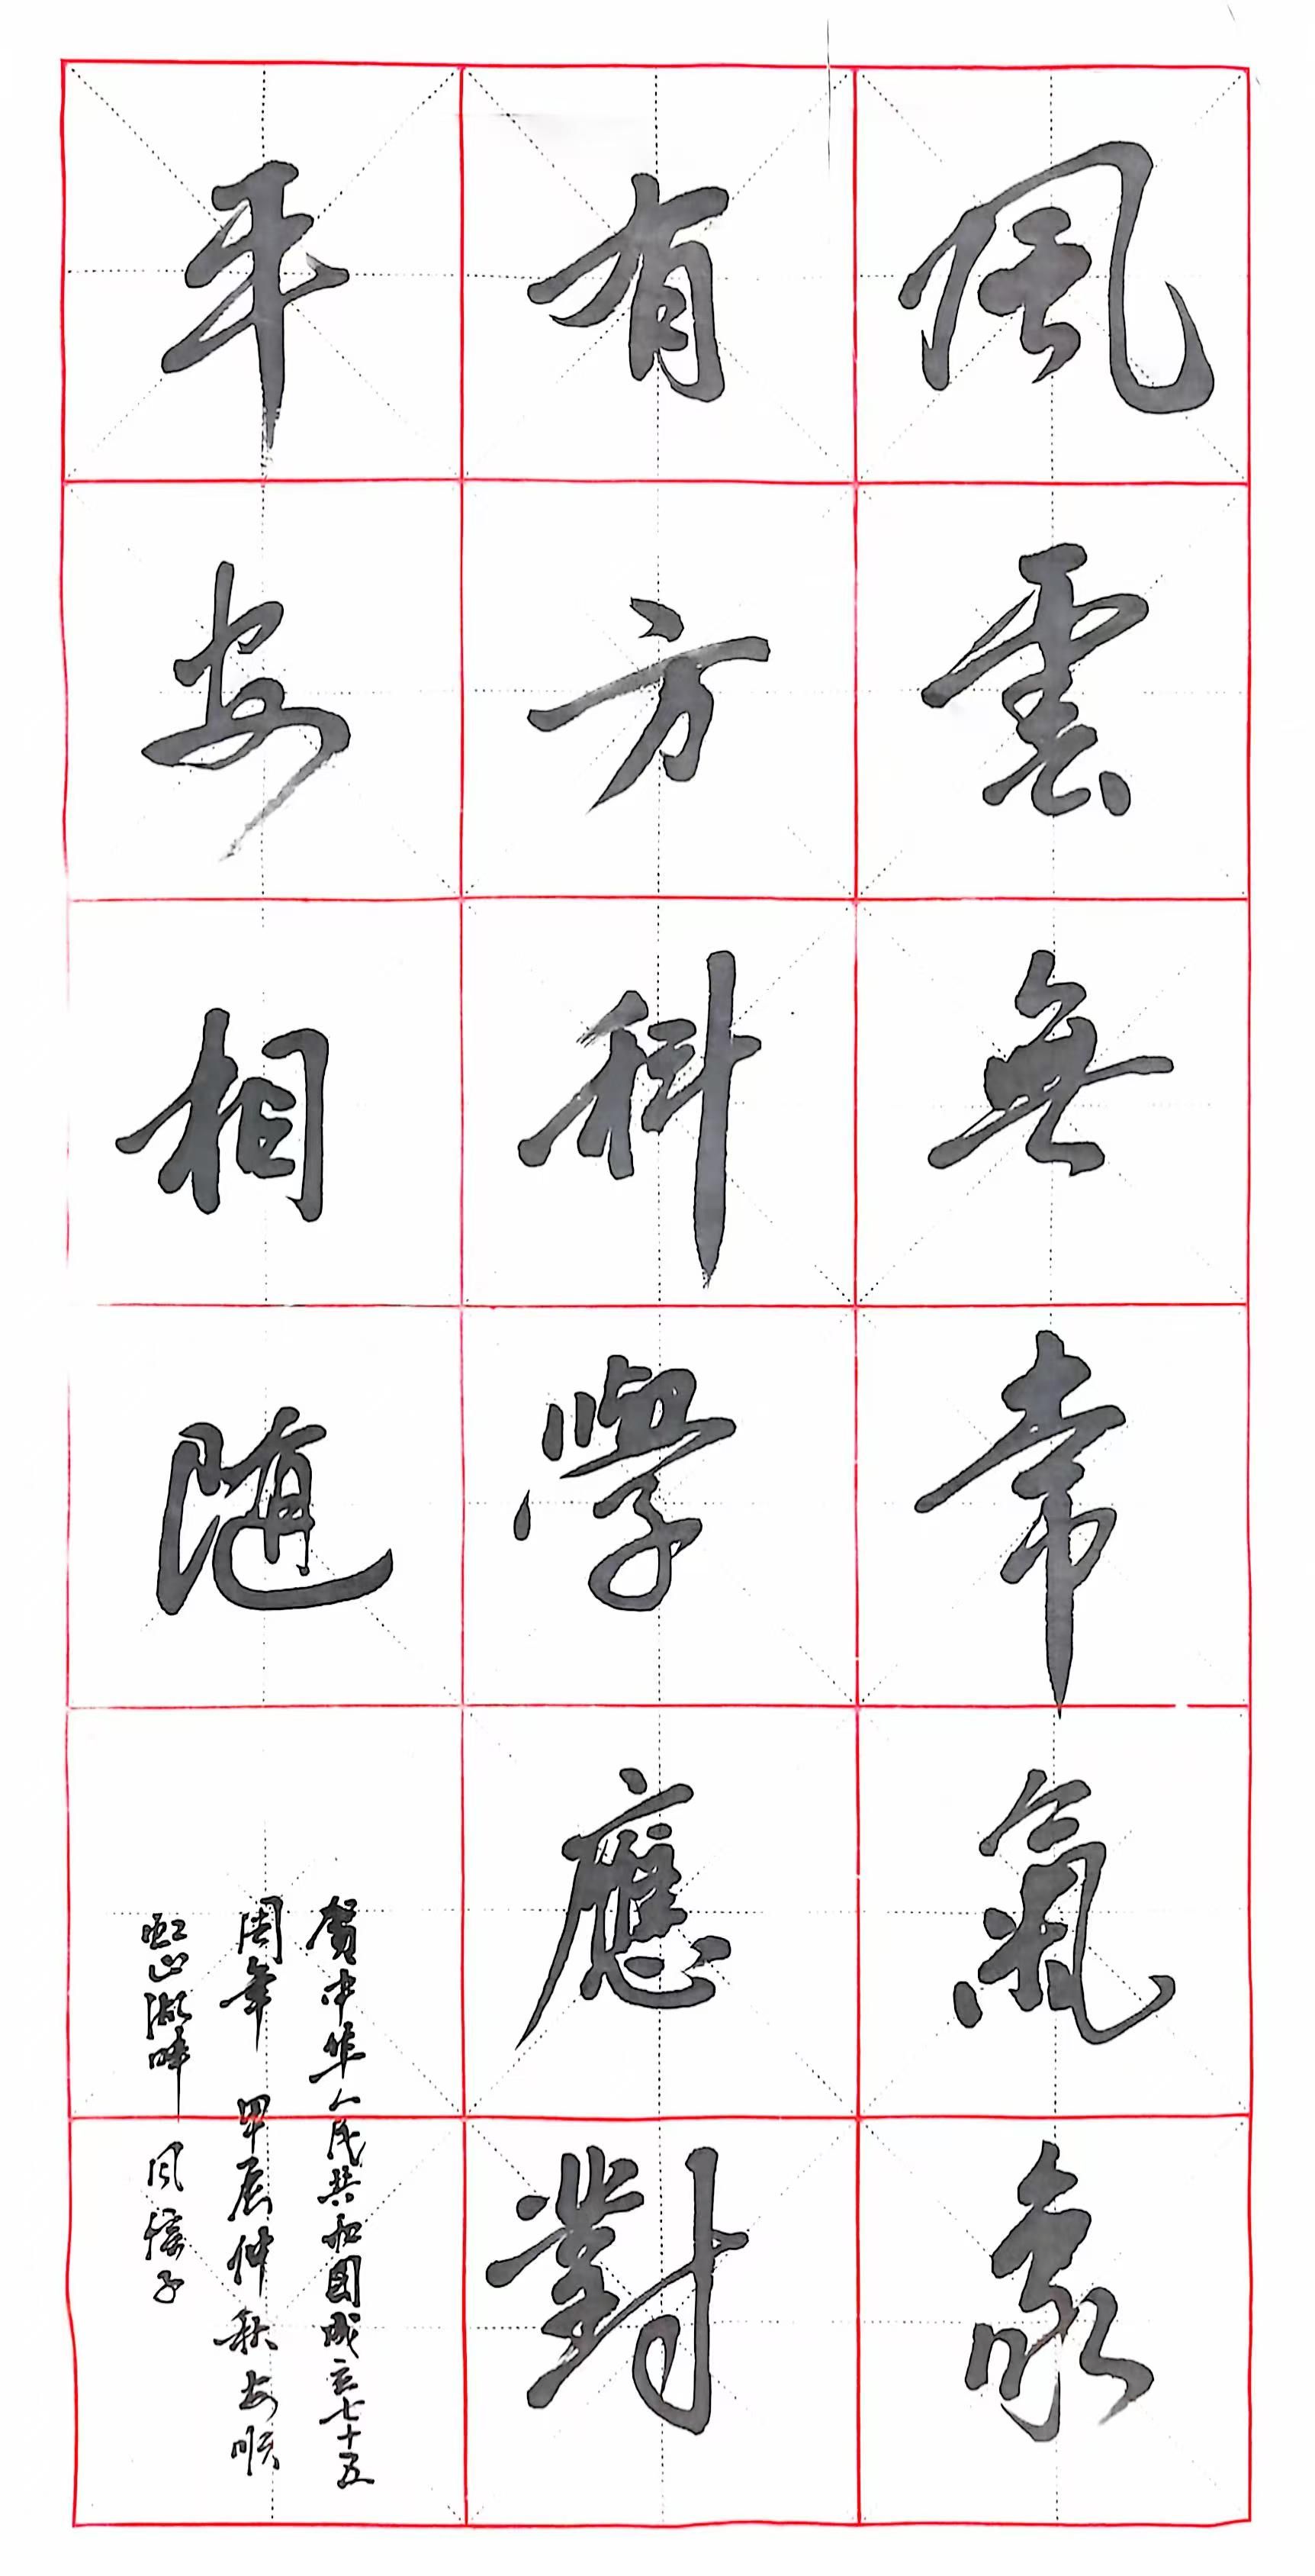 風雲無常氣象
有方科學應對
平安相隨
賀中华人民共和國成立七十五
周年 甲辰仲秋安順
虹山湖畔 風信子